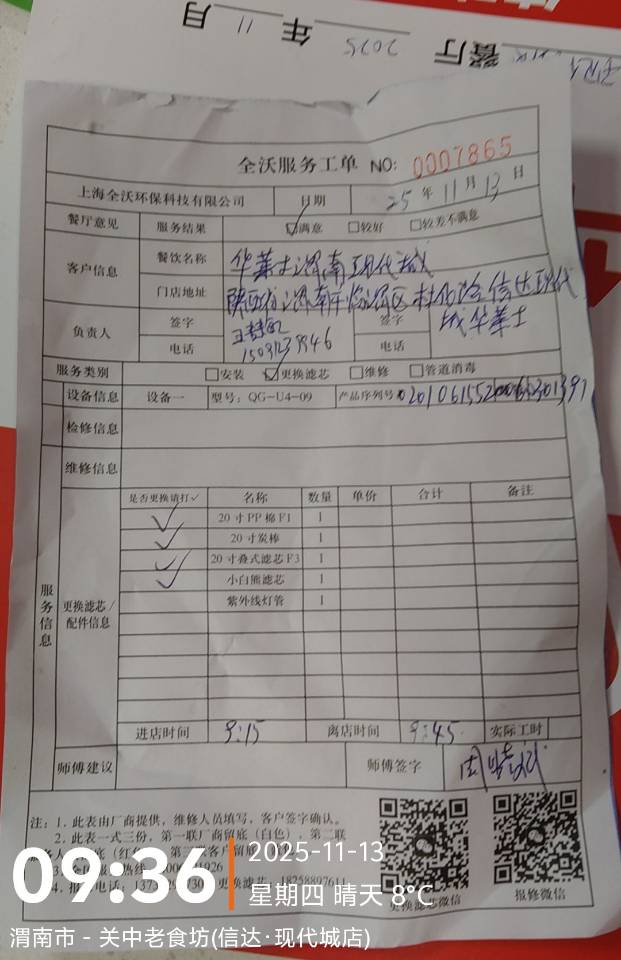 2025 年 11 月
餐厅
全沃服务工单 NO: 0007865
上海全沃环保科技有限公司 日期 25 年 11 月 13 日
餐厅意见 服务结果 ☑满意 □较好 □较差不满意
客户信息 餐饮名称 华莱士渭南现代城
门店地址 陕西省渭南市临渭区杜化路信达现代城华莱士
负责人 签字 签字
电话 电话
服务类别 □安装 ☑更换滤芯 □维修 □管道消毒
设备信息 设备一 型号: QG-U4-09 产品序列号
检修信息
维修信息
服务信息
更换滤芯/配件信息
是否更换请打✓ 名称 数量 单价 合计 备注
✓ 20寸PP棉F1 1
✓ 20寸炭棒 1
✓ 20寸叠式滤芯F3 1
✓ 小白熊滤芯 1
紫外线灯管 1
进店时间 9:15 离店时间 9:45 实际工时
师傅建议 师傅签字
注: 1. 此表由厂商提供, 维修人员填写, 客户签字确认。
2. 此表一式三份, 第一联厂商留底(白色), 第二联
更换滤芯微信 报修微信
09:36 2025-11-13
星期四 晴天 8°C
渭南市 - 关中老食坊(信达·现代城店)